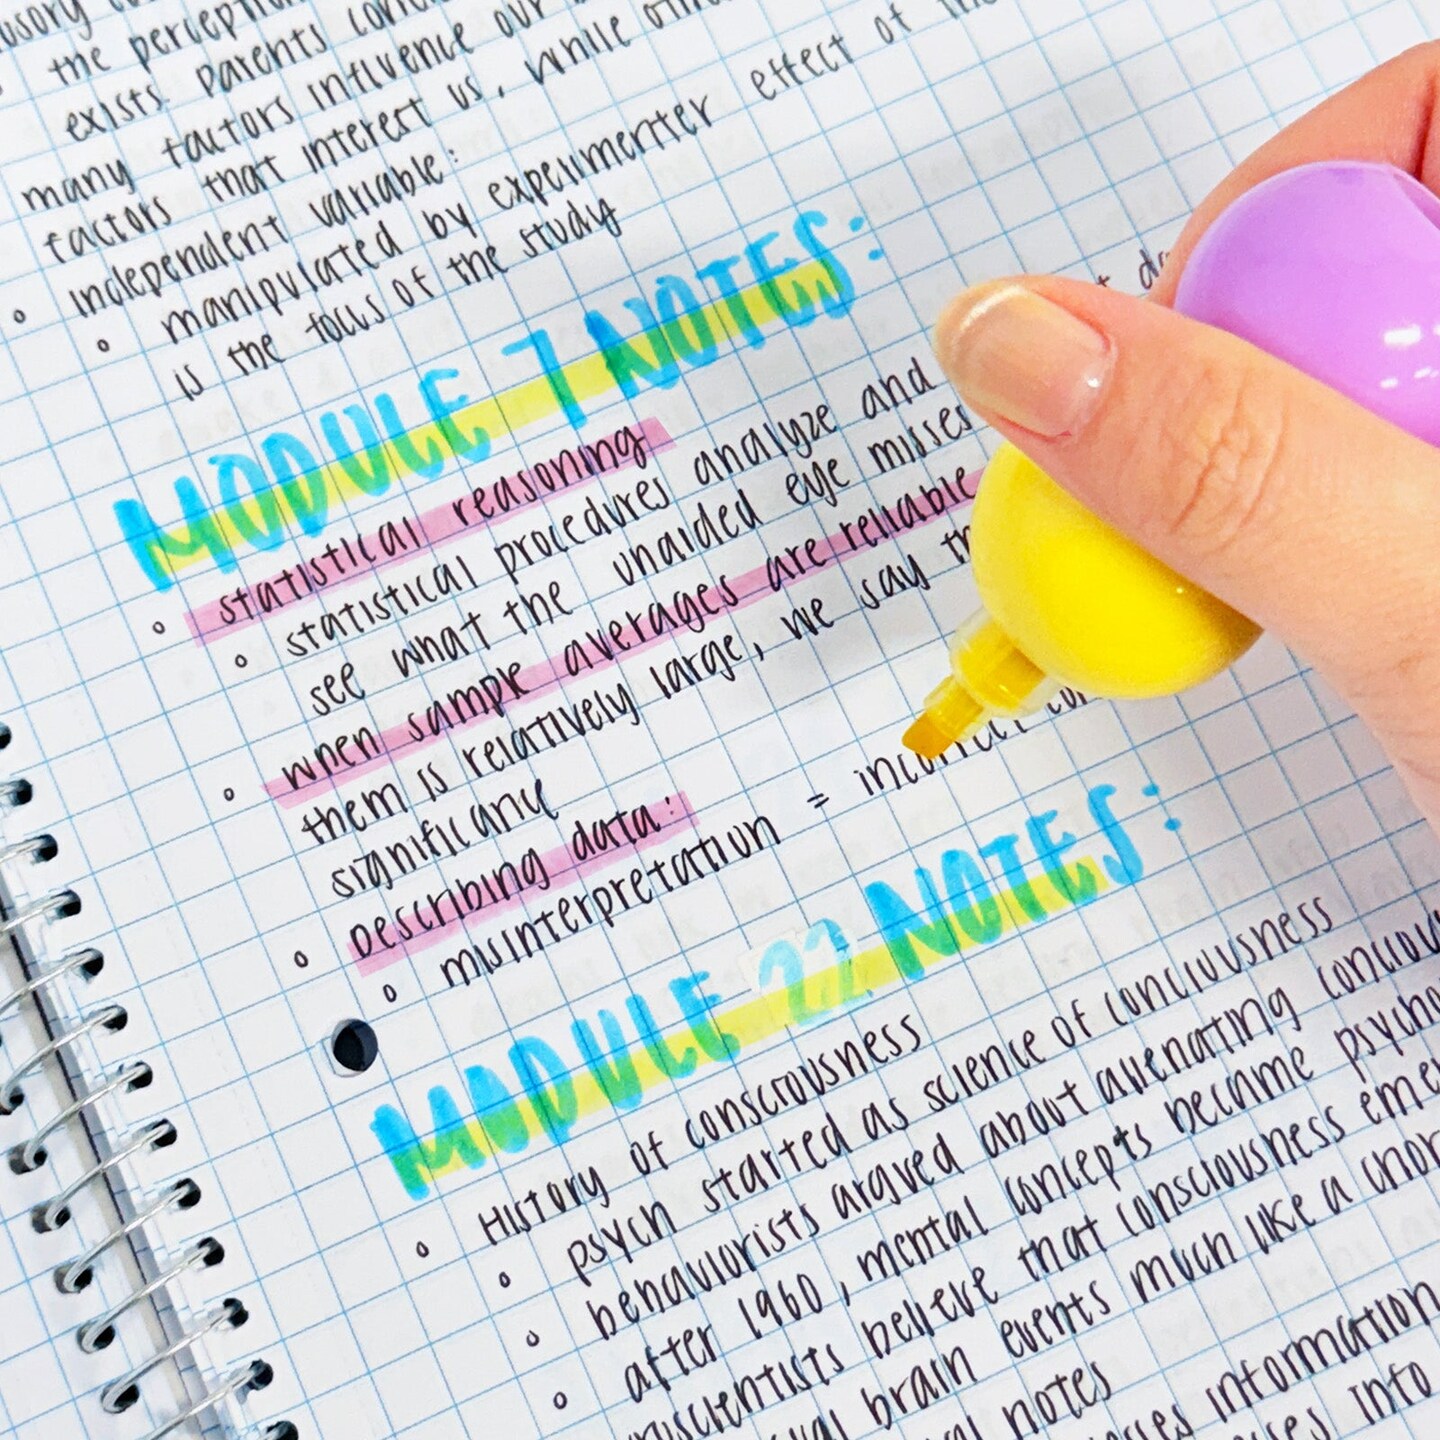 the perception
exists. Parents
many factors influence our
factors that interest us, while
independent variable:
manipulated by experimenter effect of
is the focus of the study
MODULE 7 NOTES:
statistical reasoning
statistical procedures analyze and
see what the unaided eye misses
when sample averages are reliable
them is relatively large, we say
significance
Describing data:
misinterpretation = incorrect
MODULE 22 NOTES:
History of consciousness
psych started as science of conciousness
behaviorists argued about alienating
after 1960, mental concepts became
scientists believe that consciousness
brain events much like a
notes
information
into